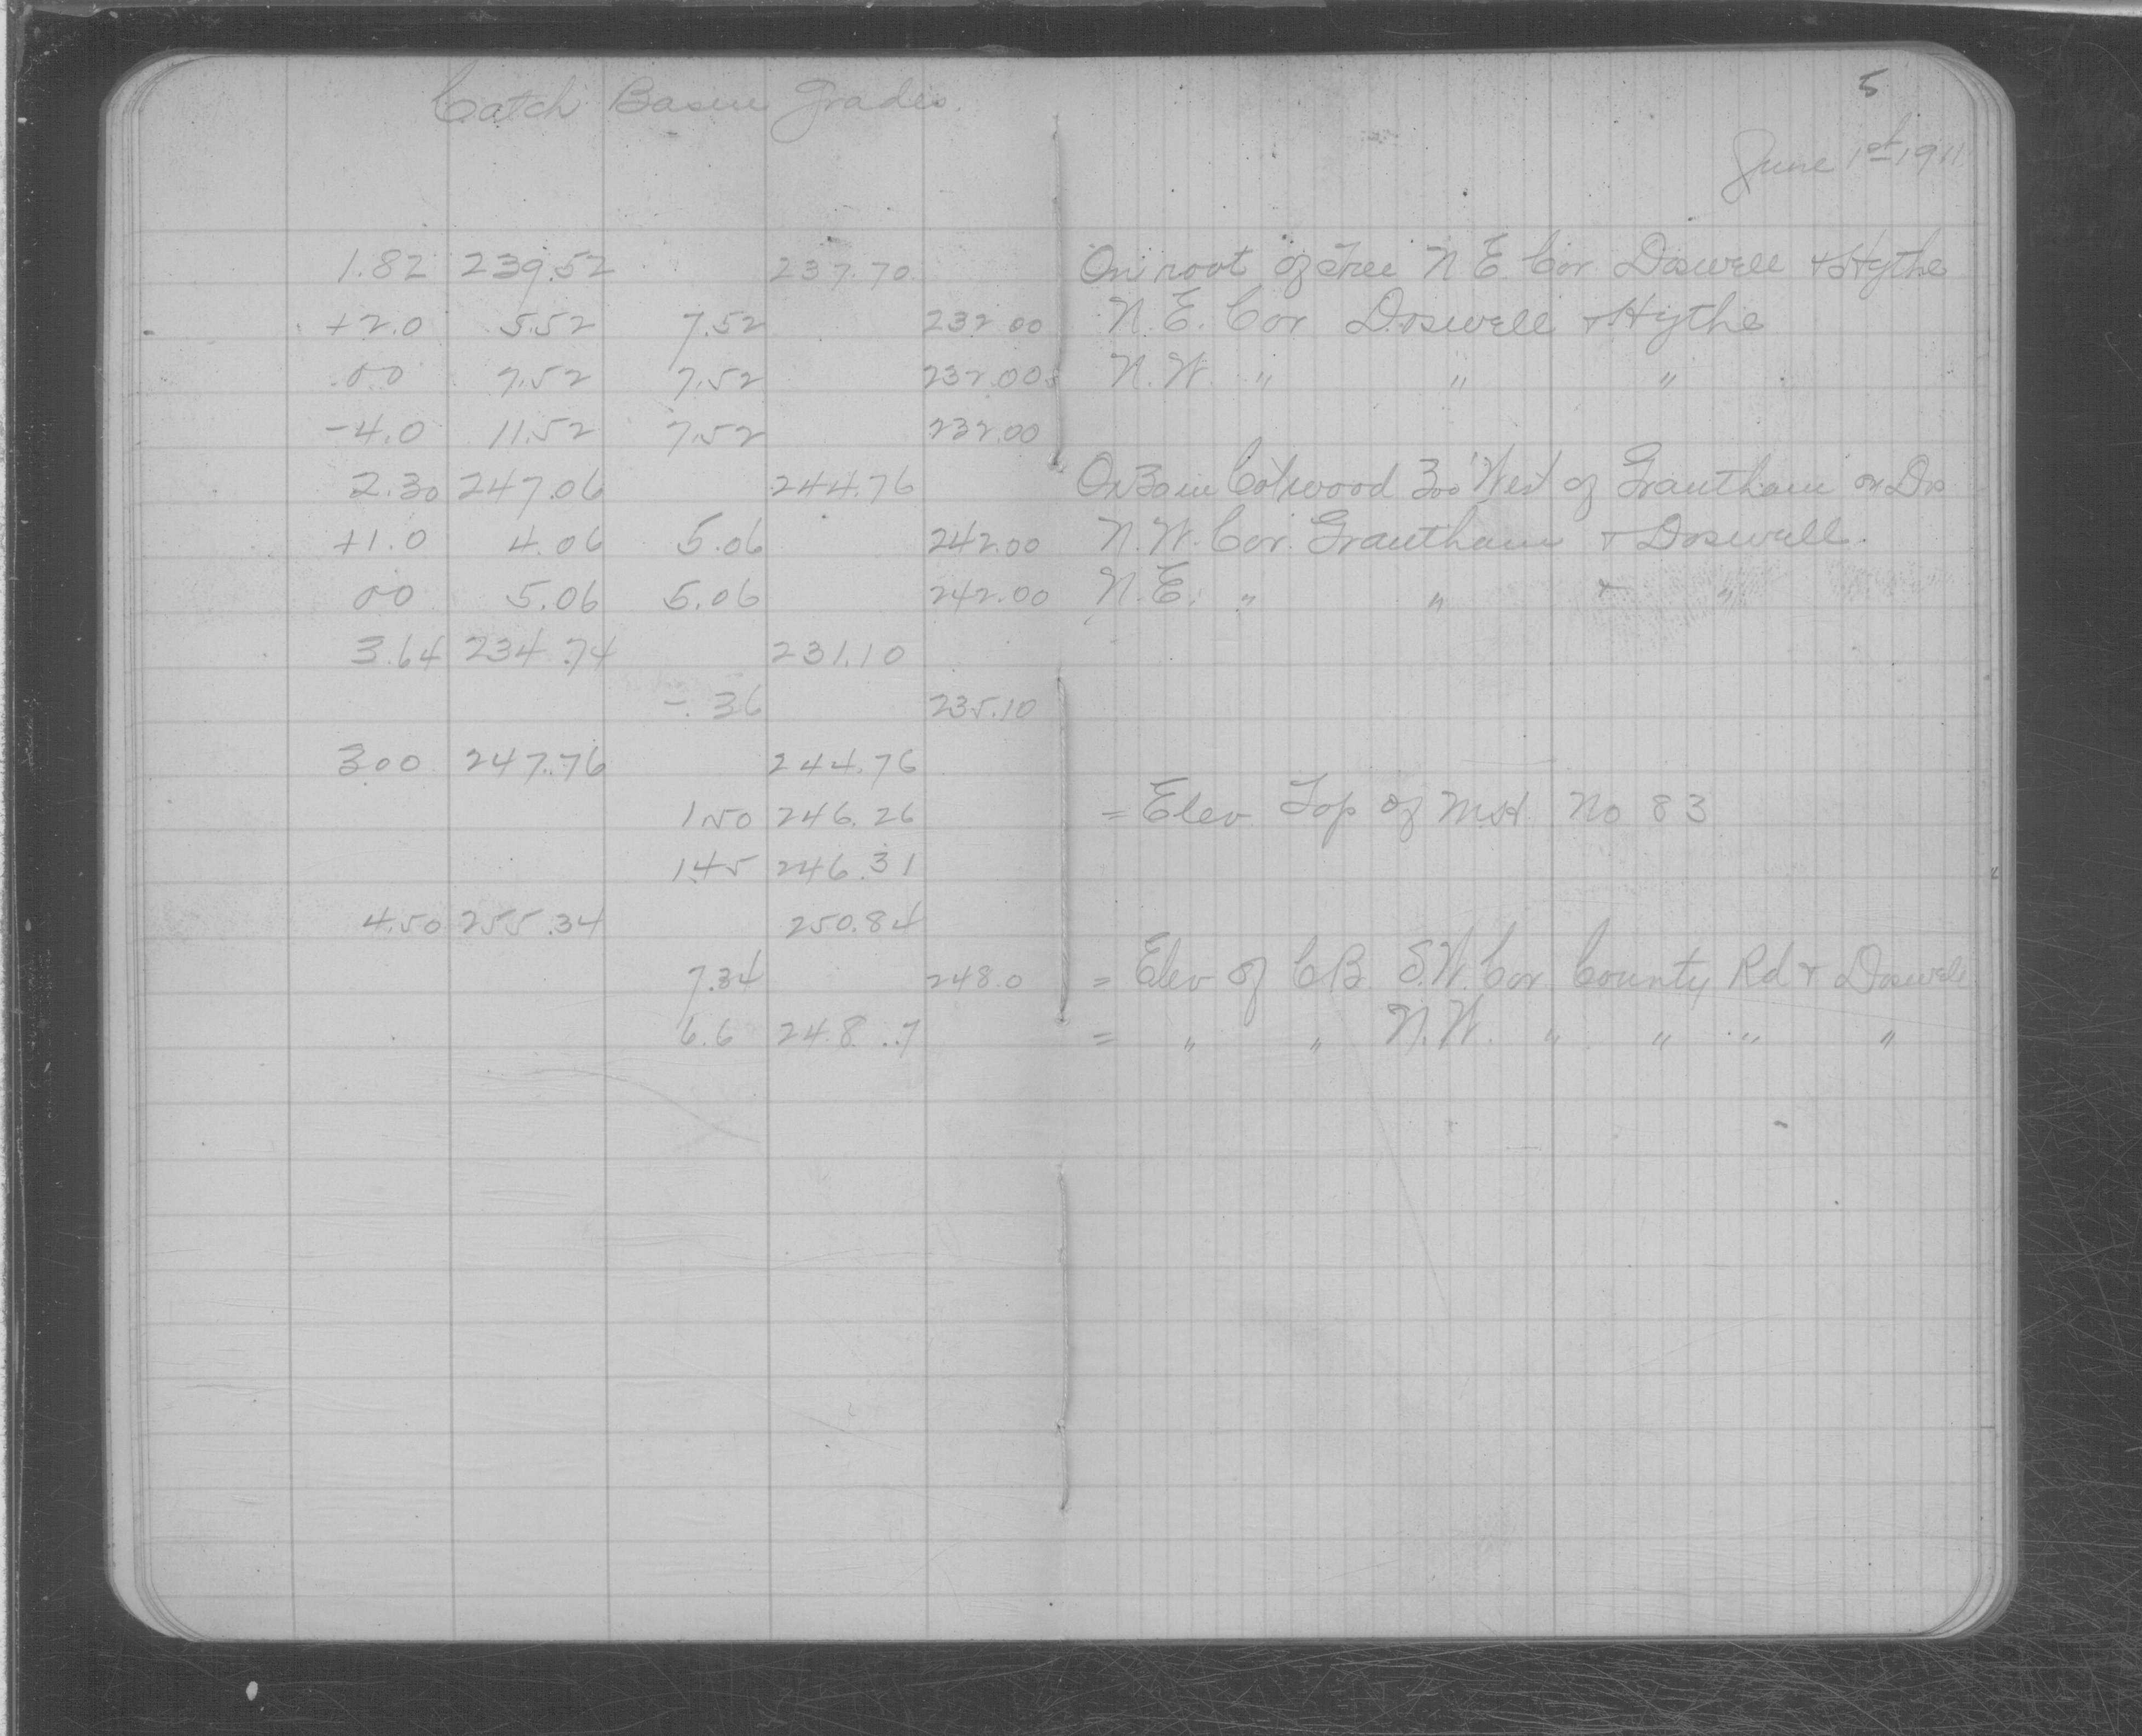 Catch Basin Grades
5
June 1st 1911
1.82 239.52 237.70 On root of tree N E Cor Doswell + Hythe
+2.0 5.52 7.52 232.00 N.E. Cor Doswell + Hythe
00 7.52 7.52 232.00 N.W. " " "
-4.0 11.52 7.52 232.00
2.30 247.06 244.76 On 30 in Cotwood 300' West of Grantham on Dos
+1.0 4.06 5.06 242.00 N.W. Cor. Grantham + Doswell.
00 5.06 5.06 242.00 N.E. " " + "
3.64 234.74 231.10
-.36 235.10
300 247.76 244.76
1.50 246.26 = Elev Top of M.H. No 83
1.45 246.31
4.50 255.34 250.84
7.34 248.0 = Elev of CB S.W. Cor. County Rd + Doswell
6.6 248.7 = " " N.W. " " " "